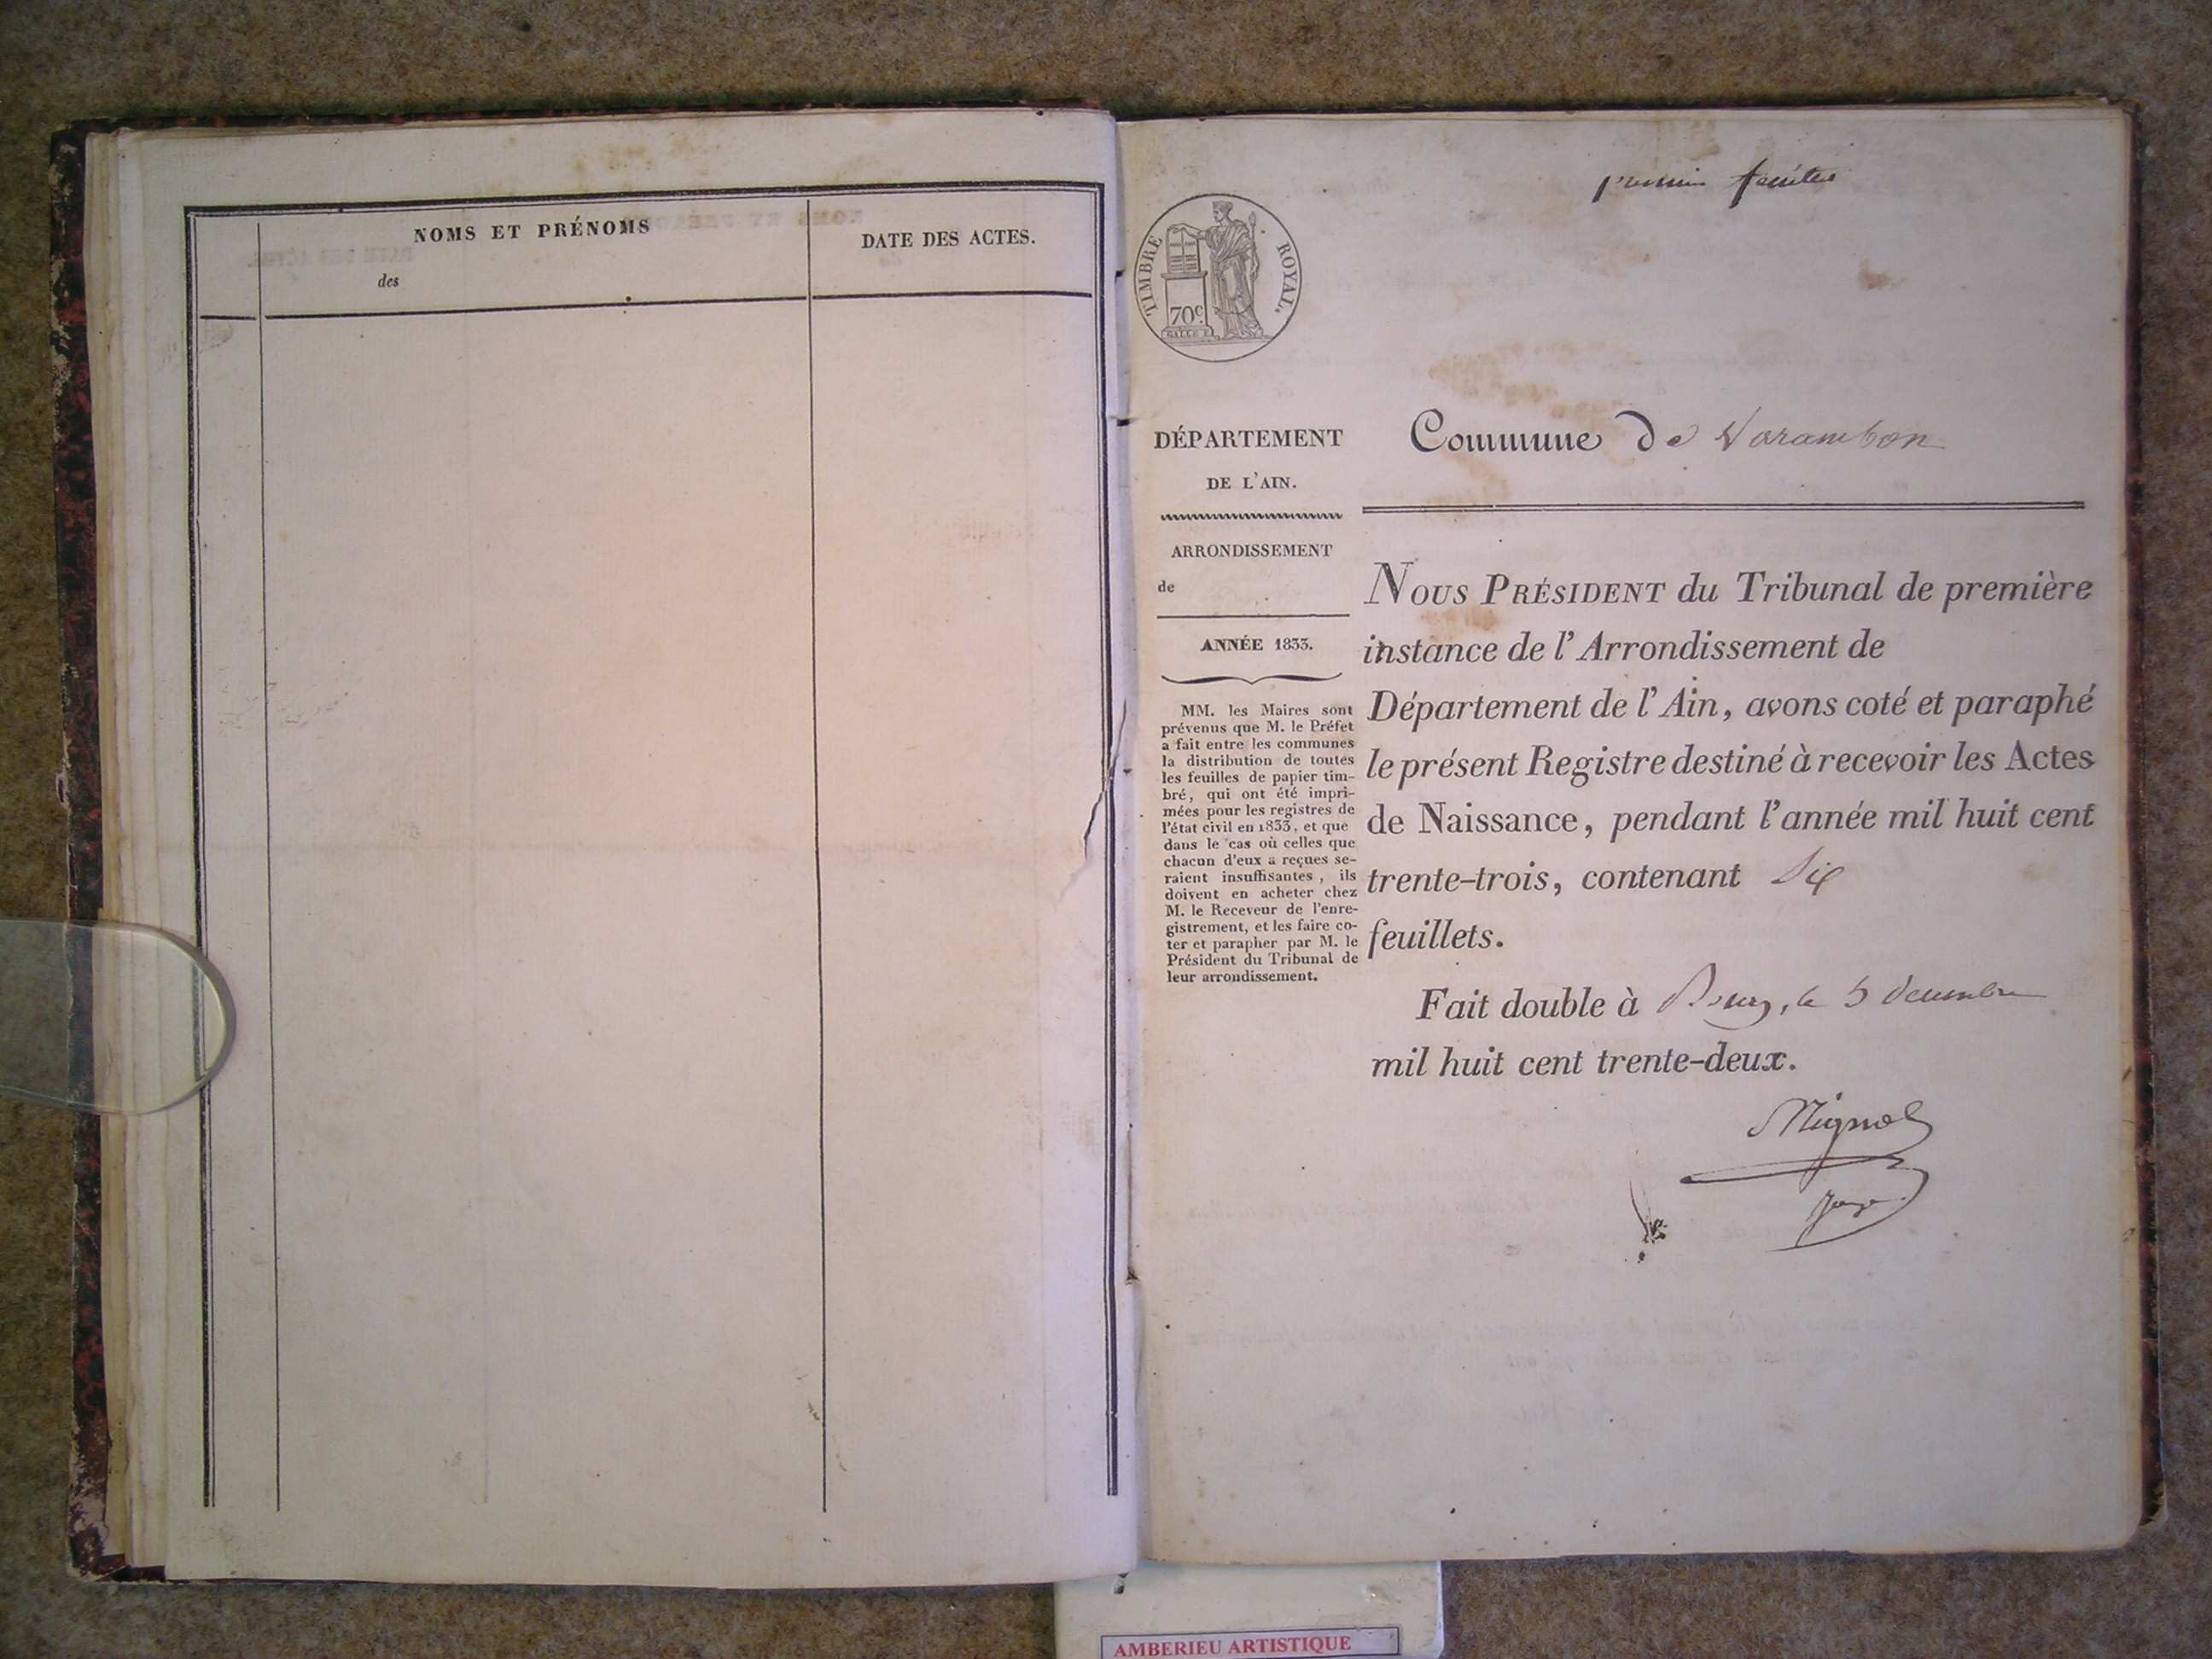 NOMS ET PRÉNOMS
des
DATE DES ACTES.
premier feuillet
TIMBRE ROYAL.
70c.
DÉPARTEMENT
DE L'AIN.
ARRONDISSEMENT
de
ANNÉE 1833.
MM. les Maires sont
prévenus que M. le Préfet
a fait entre les communes
la distribution de toutes
les feuilles de papier tim-
bré, qui ont été impri-
mées pour les registres de
l'état civil en 1833, et que
dans le cas où celles que
chacun d'eux a reçues se-
raient insuffisantes, ils
doivent en acheter chez
M. le Receveur de l'enre-
gistrement, et les faire co-
ter et parapher par M. le
Président du Tribunal de
leur arrondissement.
Commune de Varambon
NOUS PRÉSIDENT du Tribunal de première
instance de l'Arrondissement de
Département de l'Ain, avons coté et paraphé
le présent Registre destiné à recevoir les Actes
de Naissance, pendant l'année mil huit cent
trente-trois, contenant Six
feuillets.
Fait double à Bourg, le 5 décembre
mil huit cent trente-deux.
Juge
AMBERIEU ARTISTIQUE